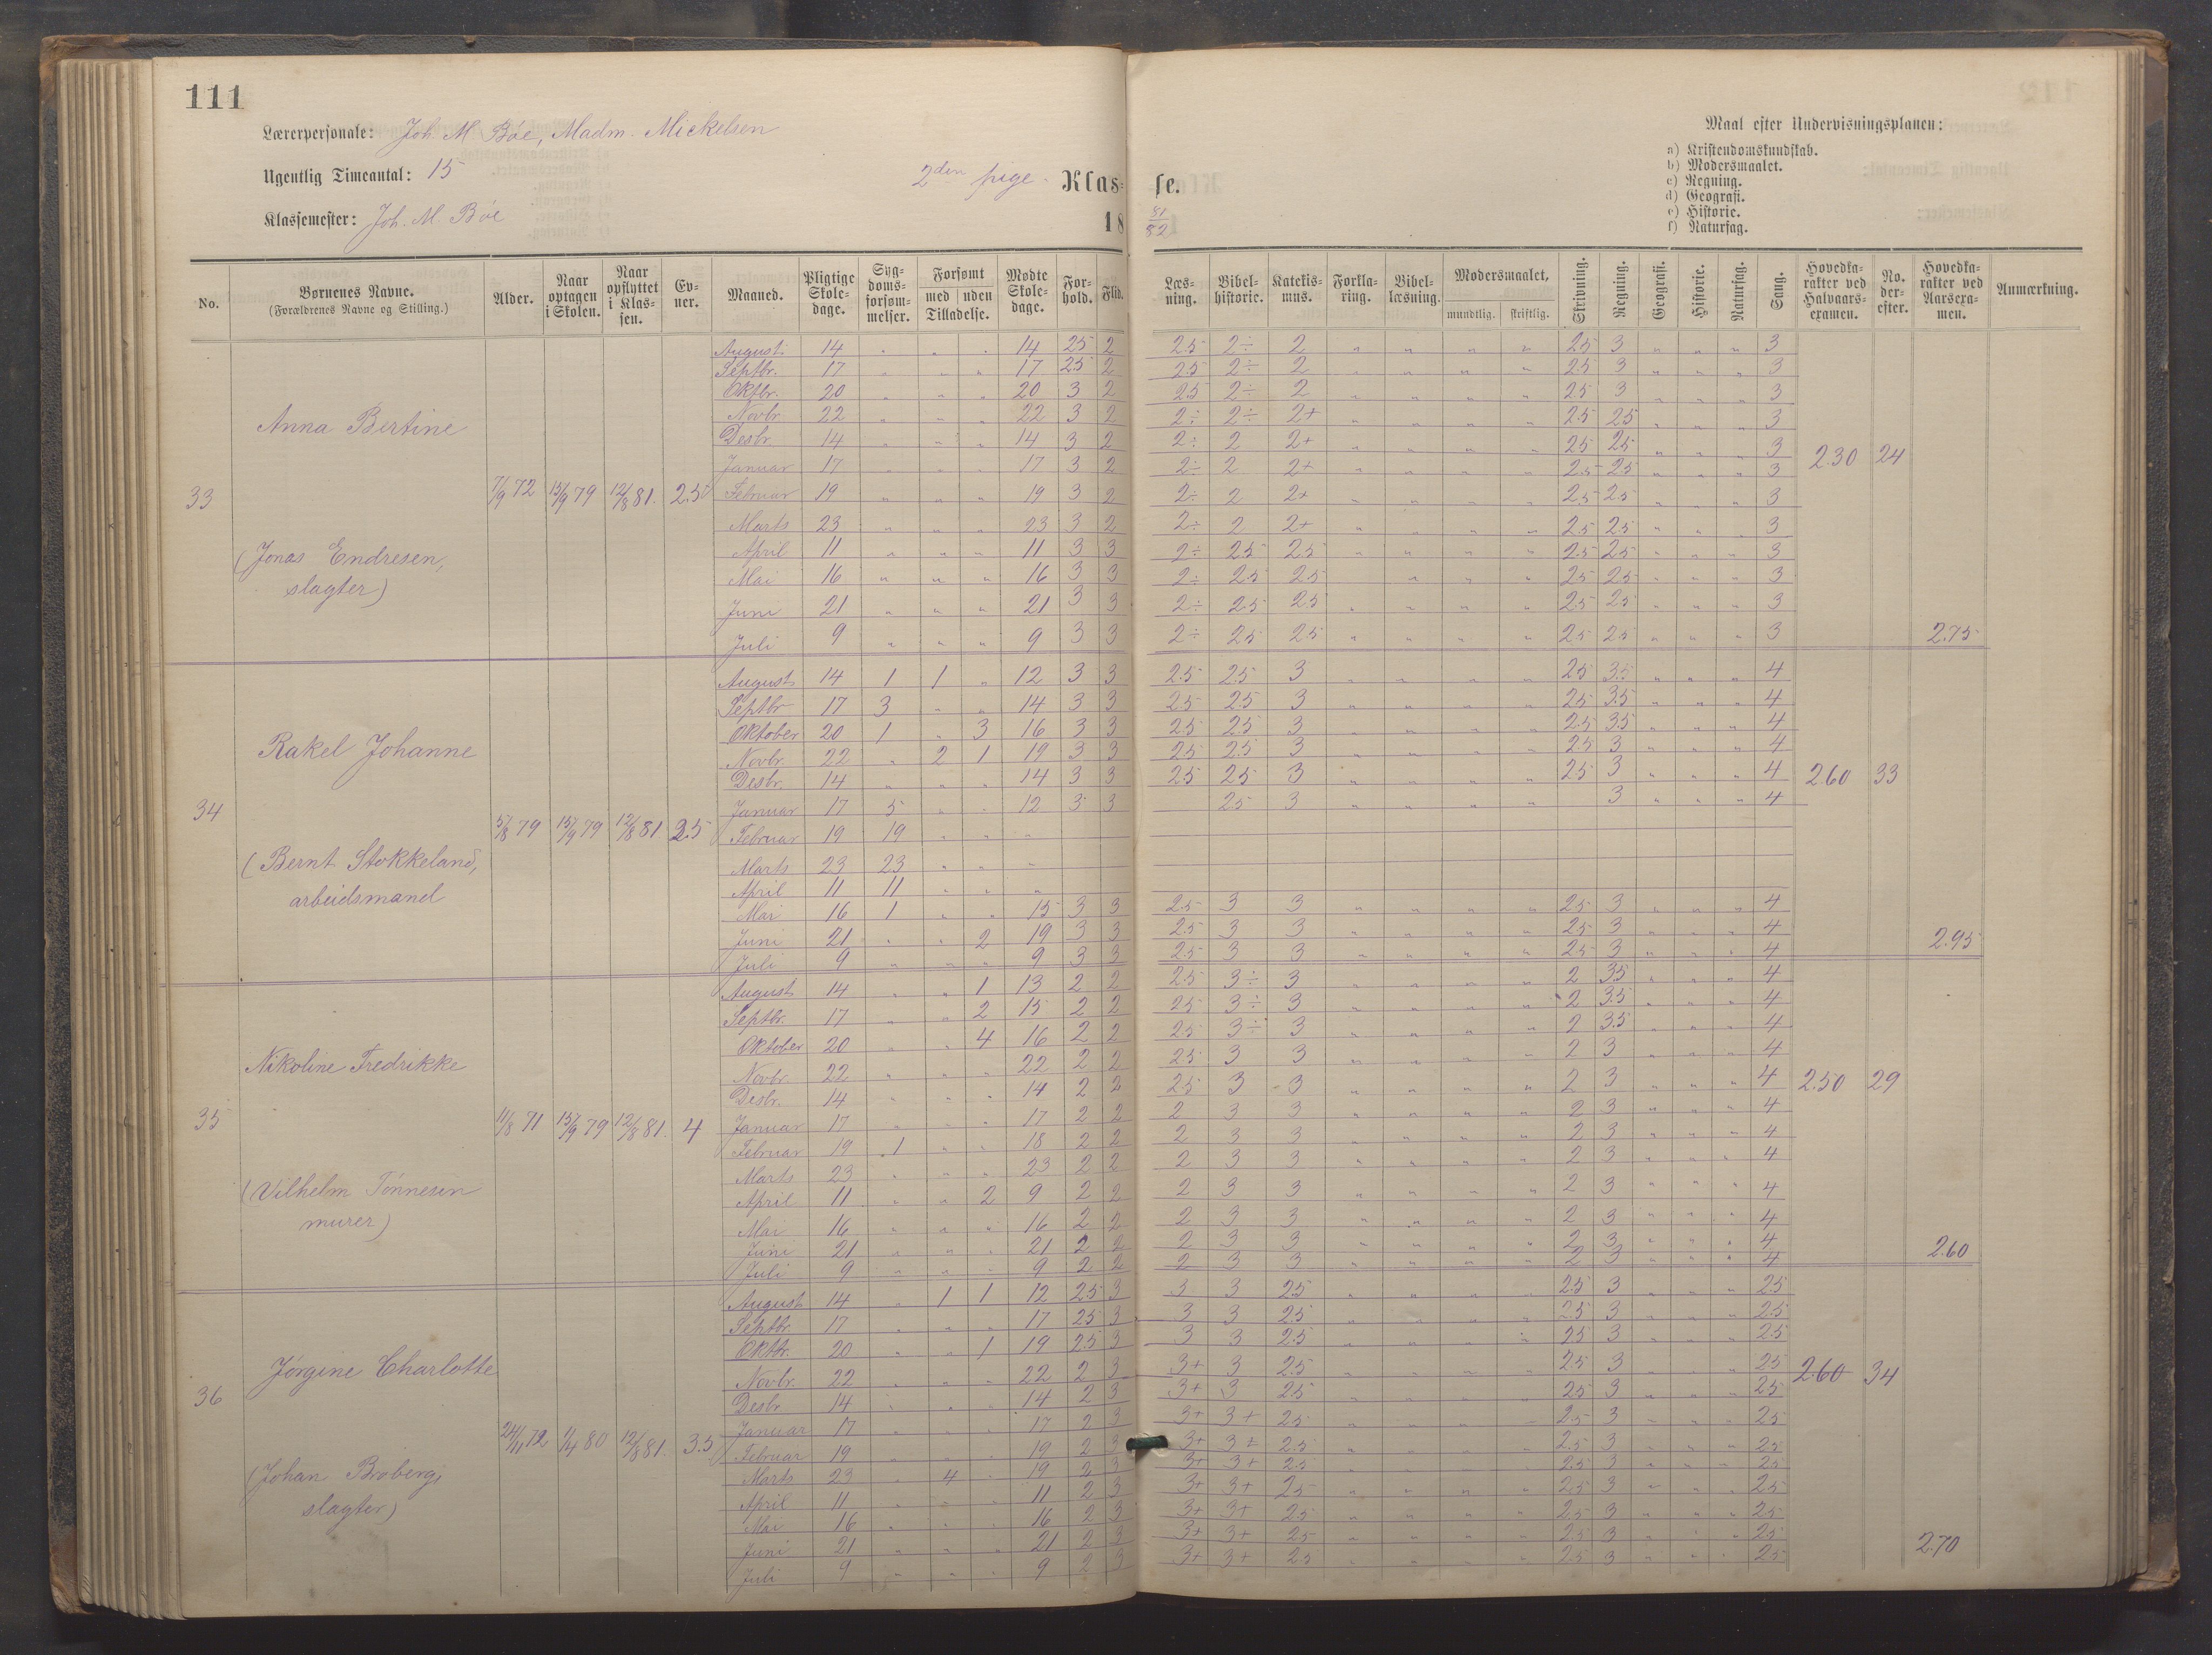 111
Lærerpersonale: Joh. M. Bøe, Madm. Mickelsen
Ugentlig Timeantal: 15
2den pige- Klas-
Klassemester: Joh. M. Bøe
18
se.
81/82
Maal efter Undervisningsplanen:
a) Kristendomskundskab.
b) Modersmaalet.
c) Regning.
d) Geografi.
e) Historie.
f) Naturfag.
No. Børnenes Navne. (Forældrenes Navne og Stilling.) Alder. Naar optagen i Skolen. Naar opflyttet i Klassen. Evner. Maaned. Pligtige Skoledage. Sygdomsforsømmelser. Forsømt med uden Tilladelse. Mødte Skoledage. Forhold. Flid. Læsning. Bibelhistorie. Katekismus. Forklaring. Bibellæsning. Modersmaalet, mundtlig. skriftlig. Skrivning. Regning. Geografi. Historie. Naturfag. Sang. Hovedkarakter ved Halvaarsexamen. No. derefter. Hovedkarakter ved Aarsexamen. Anmærkning.
33 Anna Bertine (Jonas Endresen, slagter) 7/9 72 15/9 79 12/8 81. 2.5 2.30 24 2.75
August 14 " " " 14 25 2 2.5 2÷ 2 " " " " 25 3 " " " 3
Septbr. 17 " " " 17 25 2 25 2÷ 2 " " " " 25 3 " " " 3
Oktbr. 20 " " " 20 3 2 25 2÷ 2 " " " " 25 3 " " " 3
Novbr. 22 " " " 22 3 2 2÷ 2÷ 2+ " " " " 2.5 25 " " " 3
Desbr. 14 " " " 14 3 2 2÷ 2 2+ " " " " 25 25 " " " 3
Januar 17 " " " 17 3 2 2÷ 2 2+ " " " " 25 25 " " " 3
Februar 19 " " " 19 3 2 2÷ 2 2+ " " " " 25 25 " " " 3
Marts 23 " " " 23 3 2 2÷ 2 2+ " " " " 25 25 " " " 3
April 11 " " " 11 3 3 2÷ 25 25 " " " " 25 25 " " " 3
Mai 16 " " " 16 3 3 2÷ 25 25 " " " 25 25 " " " 3
Juni 21 " " " 21 3 3 2÷ 25 25 " " " " 25 25 " " " 3
Juli 9 " " " 9 3 3 2÷ 25 25 " " " " 25 25 " " " 3
34 Rakel Johanne (Bernt Stokkeland, arbeidsmand 5/8 79 15/9 79 12/8 81 2.5 2.60 33 2.95
August 14 1 1 " 12 3 3 2.5 2.5 3 " " " " 25 3.5 " " " 4
Septbr 17 3 " " 14 3 3 25 2.5 3 " " " " 25 3.5 " " " 4
Oktober 20 1 " 3 16 3 3 2.5 2.5 3 " " " " 2.5 3.5 " " " 4
Novbr. 22 " 2 1 19 3 3 25 2.5 3 " " " " 2.5 3 " " " 4
Desbr. 14 " " " 14 3 3 25 25 3 " " " " 25 3 " " " 4
Januar 17 5 " " 12 3 3 25 3 " " " " 3 " " " 4
Februar 19 19 " " "
Marts 23 23 " " "
April 11 11 " " "
Mai 16 1 " " 15 3 3 2.5 3 3 " " " " 25 3 " " " 4
Juni 21 " " 2 19 3 3 2.5 3 3 " " " " 25 3 " " " 4
Juli 9 " " " 9 3 3 2.5 3 3 " " " " 25 3 " " " 4
35 Nikoline Fredrikke (Vilhelm Tønnesen murer) 11/8 71 15/9 79 12/8 81. 4 2.50 29 2.60
August 14 " " 1 13 2 2 25 3÷ 3 " " " " 2 35 " " " 4
Septbr. 17 " " 2 15 2 2 25 3÷ 3 " " " " 2 3.5 " " " 4
Oktober 20 " " 4 16 2 2 25 3÷ 3 " " " " 2 3.5 " " " 4
Novbr. 22 " " " 22 2 2 25 3 3 " " " " 2 3 " " " 4
Desbr. 14 " " " 14 2 2 25 3 3 " " " " 2 3 " " " 4
Januar 17 " " " 17 2 2 2 3 3 " " " " 2 3 " " " 4
Februar 19 1 " " 18 2 2 2 3 3 " " " " 2 3 " " " 4
Marts 23 " " " 23 2 2 2 3 3 " " " " 2 3 " " " 4
April 11 " " 2 9 2 2 2 3 3 " " " " 2 3 " " " 4
Mai 16 " " " 16 2 2 2 3 3 " " " " 2 3 " " " 4
Juni 21 " " " 21 2 2 2 3 3 " " " " 2 3 " " " 4
Juli 9 " " " 9 2 2 2 3 3 " " " " 2 3 " " " 4
36 Jørgine Charlotte (Johan Broberg, slagter) 24/11 72 1/4 80 12/8 81. 3.5 2.60 34 2.70
August 14 " 1 1 12 25 3 3 3 25 " " " " 2.5 3 " " " 2.5
Septbr 17 " " " 17 25 3 3 3 25 " " " " 25 3 " " " 2.5
Oktbr. 20 " " 1 19 2.5 3 3 3 2.5 " " " " 25 3 " " " 2.5
Novbr. 22 " " " 22 2 3 3+ 3 25 " " " " 2.5 3 " " " 25
Desbr 14 " " " 14 2 3 3+ 3 25 " " " " 25 3 " " " 25
Januar 17 " " " 17 2 3 3+ 3+ 25 " " " " 25 3 " " " 25
Februar 19 " " " 19 2 3 3+ 3+ 2.5 " " " " 2.5 3 " " " 25
Marts 23 " 4 " 19 2 3 3+ 3+ 25 " " " " 25 3 " " " 25
April 11 " " " 11 2 3 3+ 3+ 25 " " " " 25 3 " " " 25
Mai 16 " " " 16 2 3 3+ 3+ 25 " " " " 25 3 " " " 25
Juni 21 " " " 21 2 3 3+ 3+ 25 " " " " 25 3 " " " 25
Juli 9 " " " 9 2 3 3+ 3+ 2.5 " " " " 2.5 3 " " " 25